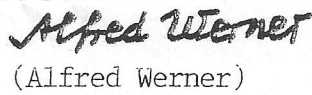 Alfred Werner
(Alfred Werner)